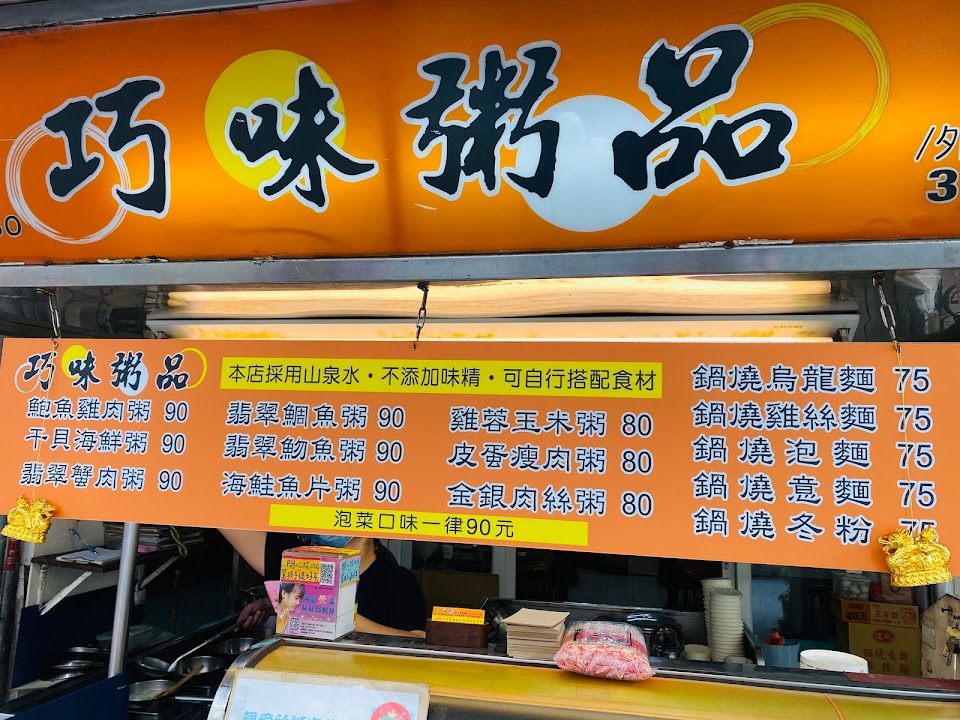 巧味粥品
/外
3
巧味粥品
本店採用山泉水・不添加味精・可自行搭配食材
鮑魚雞肉粥 90
干貝海鮮粥 90
翡翠蟹肉粥 90
翡翠鯛魚粥 90
翡翠魩魚粥 90
海鮭魚片粥 90
雞蓉玉米粥 80
皮蛋瘦肉粥 80
金銀肉絲粥 80
鍋燒烏龍麵 75
鍋燒雞絲麵 75
鍋燒泡麵 75
鍋燒意麵 75
鍋燒冬粉 75
泡菜口味一律90元